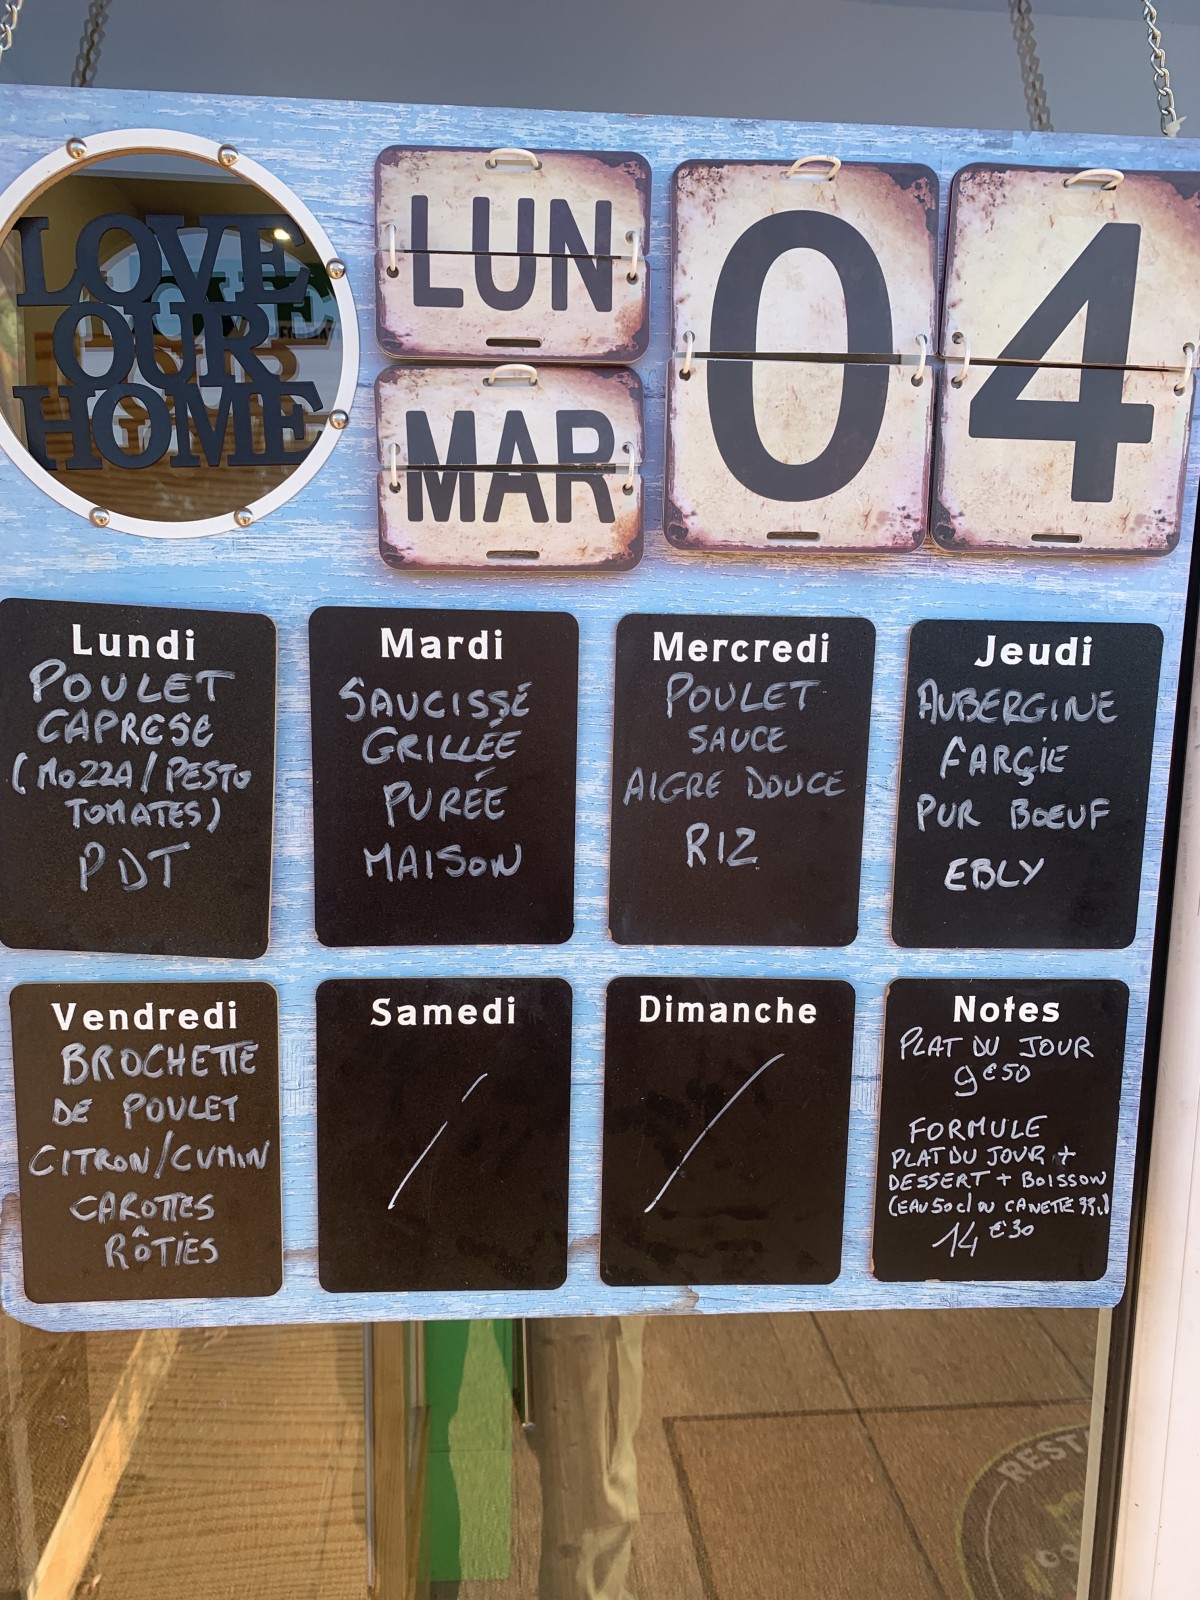 LOVE
OUR
HOME
LUN
MAR
04
Lundi
POULET
CAPRESE
(MOZZA/PESTO
TOMATES)
PDT
Mardi
SAUCISSE
GRILLÉE
PURÉE
MAISON
Mercredi
POULET
SAUCE
AIGRE DOUCE
RIZ
Jeudi
AUBERGINE
FARÇIE
PUR BOEUF
EBLY
Vendredi
BROCHETTE
DE POULET
CITRON/CUMIN
CAROTTES
RÔTIES
Samedi
/
Dimanche
/
Notes
PLAT DU JOUR
9€50
FORMULE
PLAT DU JOUR +
DESSERT + BOISSON
(EAU 50cl OU CANETTE 33cl)
14€30
REST